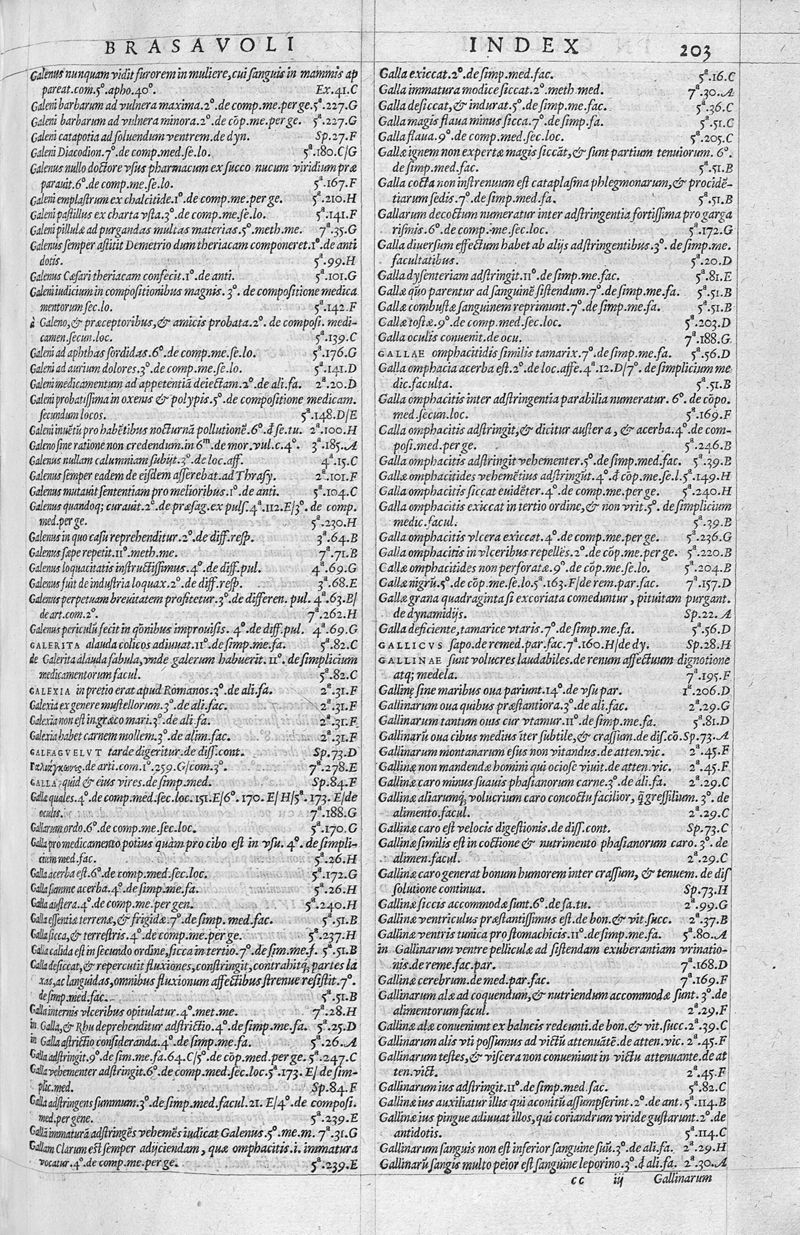 BRASAVOLI
Galenus nunquam vidit furorem in muliere, cui sanguis in mammis ap
pareat.com.5º.apho.40º. Ex.41.C
Galeni barbarum ad vulnera maxima.2º.de comp.me.per ge.5ª.227.G
Galeni barbarum ad vulnera minora.2º.de cōp.me.per ge. 5ª.227.G
Galeni catapotia ad soluendum ventrem.de dyn. Sp.27.F
Galeni Diacodion.7º.de comp.med.se.lo. 5ª.180.C/G
Galenus nullo doctore vsus pharmacum ex succo nucum viridium præ
parauit.6º.de comp.me.se.lo. 5ª.167.F
Galeni emplastrum ex chalcitide.1º.de comp.me.per ge. 5ª.210.H
Galeni pastillus ex charta vsta.3º.de comp.me.se.lo. 5ª.141.F
Galeni pillulæ ad purgandas multas materias.5º.meth.me. 7ª.35.G
Galenus semper astitit Demetrio dum theriacam componeret.1º.de anti
dotis. 5ª.99.H
Galenus Cæsari theriacam confecit.1º.de anti. 5ª.101.G
Galeni iudicium in compositionibus magnis. 3º. de compositione medica
mentorum sec.lo. 5ª.142.F
à Galeno,& præceptoribus,& amicis probata.2º. de composi. medi-
camen.secun.loc. 5ª.139.C
Galeni ad aphthas sordidas.6º.de comp.me.se.lo. 5ª.176.G
Galeni ad aurium dolores.3º.de comp.me.se.lo. 5ª.141.D
Galeni medicamentum ad appetentiā deiectam.2º.de ali.fa. 2ª.20.D
Galeni probatissima in oxenus & polypis.5º.de compositione medicam.
secundum locos. 5ª.148.D/E
Galeni inuētū pro habētibus nocturnā pollutionē.6º.d̄ se.tu. 2ª.100.H
Galeno sine ratione non credendum.in 6ᵐ.de mor.vul.c.4º. 3ª.185.A
Galenus nullam calumniam subijt.3º.de loc.aff. 4ª.15.C
Galenus semper eadem de eisdem asserebat.ad Thrasy. 2ª.101.F
Galenus mutauit sententiam pro melioribus.1º.de anti. 5ª.104.C
Galenus quandoq; curauit.2º.de præsag.ex puls.4ª.112.E/3º.de comp.
med.per ge. 5ª.230.H
Galenus in quo casu reprehenditur.2º.de diff.resp. 3ª.64.B
Galenus sæpe repetit.11º.meth.me. 7ª.71.B
Galenus loquacitatis instructissimus.4º.de diff.pul. 4ª.69.G
Galenus fuit de industria loquax.2º.de diff.resp. 3ª.68.E
Galenus perpetuam breuitatem profitetur.3º.de differen. pul. 4ª.63.B/
de art.com.2º. 7ª.262.H
Galenus periculū fecit in q̄onibus improuisis. 4º.de diff.pul. 4ª.69.G
GALERITA alauda colicos adiuuat.11º.de simp.me.fa. 5ª.82.C
de Galerita alauda fabula,vnde galerum habuerit.11º.de simplicium
medicamentorum facul. 5ª.82.C
GALEXIA in pretio erat apud Romanos.3º.de ali.fa. 2ª.31.F
Galexia ex genere mustellorum.3º.de ali.fac. 2ª.31.F
Galexia non est in græco mari.3º.de ali.fa. 2ª.31.F
Galexia habet carnem mollem.3º.de alim.fac. 2ª.31.F
GALFAGVELVT tarde digeritur.de diss.cont. Sp.73.D
de arti.com.1º.259.G/com.3º. 7ª.278.E
GALLA quid & eius vires.de simp.med. Sp.84.F
Galla quales.4º.de comp.med.sec.loc.151.E/6º.170.E/H/5ª.173.E/de
oculis. 7ª.188.G
Gallarum ordo.6º.de comp.me.sec.loc. 5ª.170.G
Galla pro medicamento potius quàm pro cibo est in vsu. 4º. de simpli-
cium med.fac. 5ª.26.H
Galla acerba est.6º.de comp.med.sec.loc. 5ª.172.G
Galla summe acerba.4º.de simp.me.fa. 5ª.26.H
Galla austera.4º.de comp.me.per gen. 5ª.240.H
Galla essentiæ terrenæ,& frigidæ.7º.de simp. med.fac. 5ª.51.B
Galla sicca,& terrestris.4º.de comp.me.per ge. 5ª.237.H
Galla calida est in secundo ordine,sicca in tertio.7º.de sim.me.f. 5ª.51.B
Galla desiccat,& repercutit fluxiones,constringit,contrahitq, partes la
xas,ac languidas,omnibus fluxionum affectibus strenue resistit.7º.
de simp.med.fac. 5ª.51.B
Galla internis vlceribus opitulatur.4º.met.me. 7ª.28.H
in Galla,& Rhu deprehenditur adstrictio.4º.de simp.me.fa. 5ª.25.D
in Galla astrictio consideranda.4º.de simp.me.fa. 5ª.26.A
Galla adstringit.9º.de sim.me.fa.64.C/5º.de cōp.med.per ge.5ª.247.C
Galla vehementer adstringit.6º.de comp.med.sec.loc.5ª.173.E/de sim-
plic.med. Sp.84.F
Galla adstringens summum.3º.de simp.med.facul.21.E/4º.de composi.
med.per gene. 5ª.239.E
Galla immatura adstringēs vehemēs iudicat Galenus.5º.me.m. 7ª.31.G
Gallam Clarum est semper adijciendam, quæ omphacitis.i. immatura
vocatur.4º.de comp.me.per ge. 5ª.239.E
INDEX 203
Galla exiccat.2º.de simp.med.fac. 5ª.16.C
Galla immatura modice siccat.2º.meth med. 7ª.30.A
Galla desiccat,& indurat.5º.de simp.me.fac. 5ª.36.C
Galla magis flaua minus sicca.7º.de simp.fa. 5ª.51.C
Galla flaua.9º.de comp.med.sec.loc. 5ª.205.C
Gallæ ignem non expertæ magis siccāt,& sunt partium tenuiorum. 6º.
de simp.med.fac. 5ª.51.B
Galla cocta non instrenuum est cataplasma phlegmonarum,& procidē-
tiarum sedis.7º.de simp.med.fa. 5ª.51.B
Gallarum decoctum numeratur inter adstringentia fortissima pro garga
rismis.6º.de comp.me.sec.loc. 5ª.172.G
Galla diuersum effectum habet ab alijs adstringentibus.3º.de simp.me.
facultatibus. 5ª.20.D
Galla dysenteriam adstringit.11º.de simp.me.fac. 5ª.81.E
Gallæ quo parentur ad sanguinē sistendum.7º.de simp.me.fa. 5ª.51.B
Gallæ combustæ sanguinem reprimunt.7º.de simp.me.fa. 5ª.51.B
Gallæ tostæ.9º.de comp.med.sec.loc. 5ª.203.D
Galla oculis conuenit.de ocu. 7ª.188.G
GALLAE omphacitidis similis tamarix.7º.de simp.me.fa. 5ª.56.D
Galla omphacia acerba est.2º.de loc.affe.4ª.12.D/7º.de simplicium me
dic.faculta. 5ª.51.B
Galla omphacitis inter adstringentia parabilia numeratur. 6º.de cōpo.
med.secun.loc. 5ª.169.F
Galla omphacitis adstringit,& dicitur austera, & acerba.4º.de com-
posi.med.per ge. 5ª.246.B
Galla omphacitis adstringit vehementer.5º.de simp.med.fac. 5ª.39.B
Galla omphacitides vehemētius adstringūt.4º.d̄ cōp.me.se.l.5ª.149.H
Galla omphacitis siccat euidēter.4º.de comp.me.per ge. 5ª.240.H
Galla omphacitis exiccat in tertio ordine,& non vrit.5º.de simplicium
medic.facul. 5ª.39.B
Galla omphacitis vlcera exiccat.4º.de comp.me.per ge. 5ª.236.G
Galla omphacitis in vlceribus repellēs.2º.de cōp.me.per ge. 5ª.220.B
Gallæ omphacitides non perforatæ.9º.de cōp.me.se.lo. 5ª.204.B
Gallæ nigrū.5º.de cōp.me.se.lo.5ª.163.F/de rem.par.fac. 7ª.157.D
Gallæ grana quadraginta si excoriata comeduntur, pituitam purgant.
de dynamidijs. Sp.22.A
Galla deficiente,tamarice vtaris.7º.de simp.me.fa. 5ª.56.D
GALLICVS sapo.de remed.par.fac.7ª.160.H/de dy. Sp.28.H
GALLINAE sunt volucres laudabiles.de renum affectuum dignotione
atq; medela. 7ª.195.F
Gallinę sine maribus oua pariunt.14º.de vsu par. 1ª.206.D
Gallinarum oua quibus præstantiora.3º.de ali.fac. 2ª.29.G
Gallinarum tantum ouis cur vtamur.11º.de simp.me.fa. 5ª.81.D
Gallinarū oua cibus medius iter subtile,& crassum.de dis.cō.Sp.73.A
Gallinarum montanarum esus non vitandus.de atten.vic. 2ª.45.F
Gallinæ non mandendæ homini qui ociose viuit.de atten.vic. 2ª.45.F
Gallinæ caro minus suauis phasianorum carne.3º.de ali.fa. 2ª.29.C
Gallinæ aliarumq, volucrium caro concoctu facilior, q̄ gressilium. 3º.de
alimento.facul. 2ª.29.C
Gallinæ caro est velocis digestionis.de diss.cont. Sp.73.C
Gallinæ similis est in coctione & nutrimento phasianorum caro. 3º.de
alimen.facul. 2ª.29.C
Gallinæ caro generat bonum humorem inter crassum, & tenuem.de dis
solutione continua. Sp.73.H
Gallinæ siccis accommodæ sunt.6º.de sa.tu. 2ª.99.G
Gallinæ ventriculus præstantissimus est.de bon.& vit.succ. 2ª.37.B
Gallinæ ventris tunica pro stomachicis.11º.de simp.me.fa. 5ª.80.A
in Gallinarum ventre pelliculæ ad sistendam exuberantiam vrinatio-
nis.de reme.fac.par. 7ª.168.D
Gallinæ cerebrum.de med.par.fac. 7ª.169.F
Gallinarum alæ ad coquendum,& nutriendum accommodæ sunt. 3º.de
alimentorum facul. 2ª.29.F
Gallinæ alæ conueniunt ex balneis redeunti.de bon.& vit.succ.2ª.39.C
Gallinarum alis vti possumus ad victū attenuātē.de atten.vic. 2ª.45.F
Gallinarum testes,& viscera non conueniunt in victu attenuante.de at
ten.vict. 2ª.45.F
Gallinarum ius adstringit.11º.de simp.med.fac. 5ª.82.C
Gallinæ ius auxiliatur illis qui aconitū assumpserint.2º.de ant.5ª.114.B
Gallinæ ius pingue adiuuat illos,qui coriandrum viride gustarunt.2º.de
antidotis. 5ª.114.C
Gallinarum sanguis non est inferior sanguine suū.3º.de ali.fa. 2ª.29.H
Gallinarū sāgis multo peior est sanguine leporino.3º.d̄ ali.fa. 2ª.30.A
cc iij Gallinarum